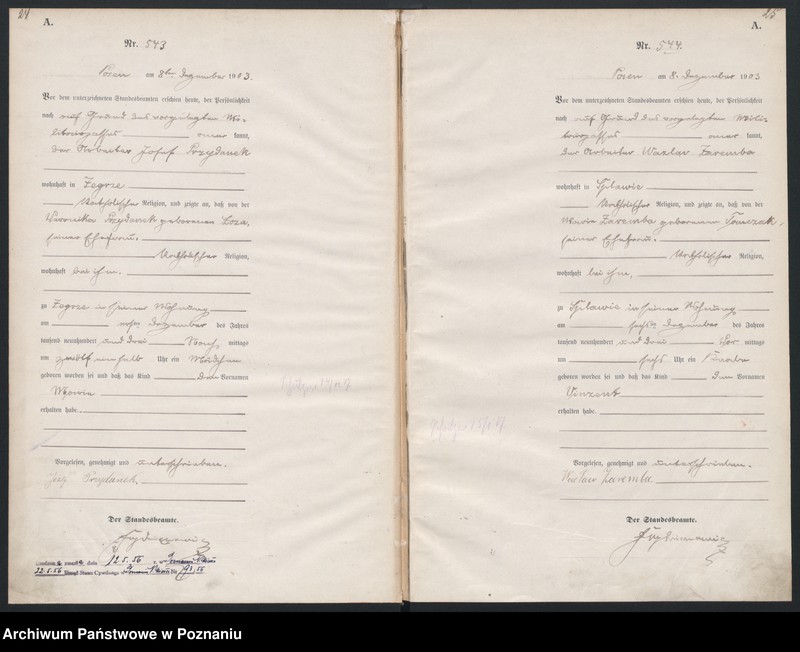 24
A.
Nr. 543
Posen am 8ten Dezember 1903.
Vor dem unterzeichneten Standesbeamten erschien heute, der Persönlichkeit
nach auf Grund des vorgelegten Mi-
litärpasses kannt,
der Arbeiter Josef
wohnhaft in Zegrze
katholischer Religion, und zeigte an, daß von der
Wironika geborenen
seiner Ehefrau,
katholischer Religion,
wohnhaft bei ihm,
zu Zegrze in seiner Wohnung
am Dezember des Jahres
tausend neunhundert und drei Nach mittags
um zwölf einhalb Uhr ein Mädchen
geboren worden sei und daß das Kind den Vornamen
erhalten habe.
Vorgelesen, genehmigt und unterschrieben.
Der Standesbeamte.
12.5.56
22.5.56 Urząd Stanu Cywilnego
25
A.
Nr. 544.
Posen am 8. Dezember 1903
Vor dem unterzeichneten Standesbeamten erschien heute, der Persönlichkeit
nach auf Grund des vorgelegten Mili-
tärpasses kannt,
der Arbeiter Wazlav Zaremba
wohnhaft in Spławie
katholischer Religion, und zeigte an, daß von der
Maria Zaremba geborenen Tomczak,
seiner Ehefrau,
katholischer Religion,
wohnhaft bei ihm,
zu Spławie in seiner Wohnung
am sechsten Dezember des Jahres
tausend neunhundert und drei Vor mittags
um sechs Uhr ein Knabe
geboren worden sei und daß das Kind den Vornamen
Vinzent
erhalten habe.
Vorgelesen, genehmigt und unterschrieben.
Wacław Zaremba
Der Standesbeamte.
Archiwum Państwowe w Poznaniu